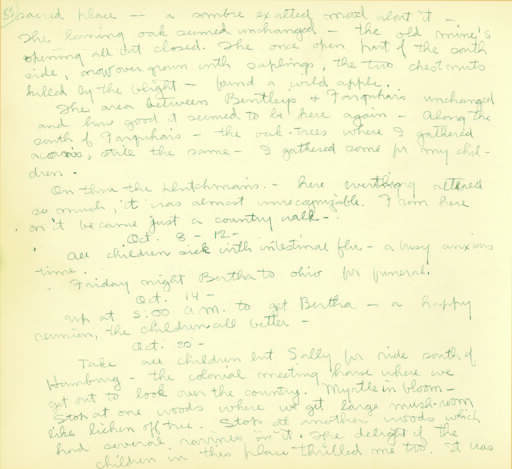 sacred place -- a sombre exalted mood about it -.
The leaning oak seemed unchanged - the old mine's
opening all but closed. The once open part of the south
side, now overgrown with saplings, the two chestnuts
killed by the blight - found a wild apple.
The area between Bentleys & Farquhars unchanged
and how good it seemed to be here again - along the
south of Farquhars - the oak-trees where I gathered
acorns, still the same - I gathered some for my chil-
dren.
On thru the Dutchman's - here everything altered
so much, it was almost unrecognizable. From here
on it became just a country walk -
Oct. 8 - 12 -
All children sick with intestinal flu - a busy anxious
time.
Friday night Bertha to Ohio for funeral.
Oct. 14 -
up at 5:00 A.M. to get Bertha - a happy
reunion, the children all better -
Oct. 20 -
Take all children but Sally for ride south of
Hamburg - the colonial meeting house where we
get out to look over the country. Myrtle in bloom -
Stop at one woods where we get large mush-room
like lichen off tree. Stop at another woods which
had several ravines in it. The delight of the
children in this place thrilled me too. It was